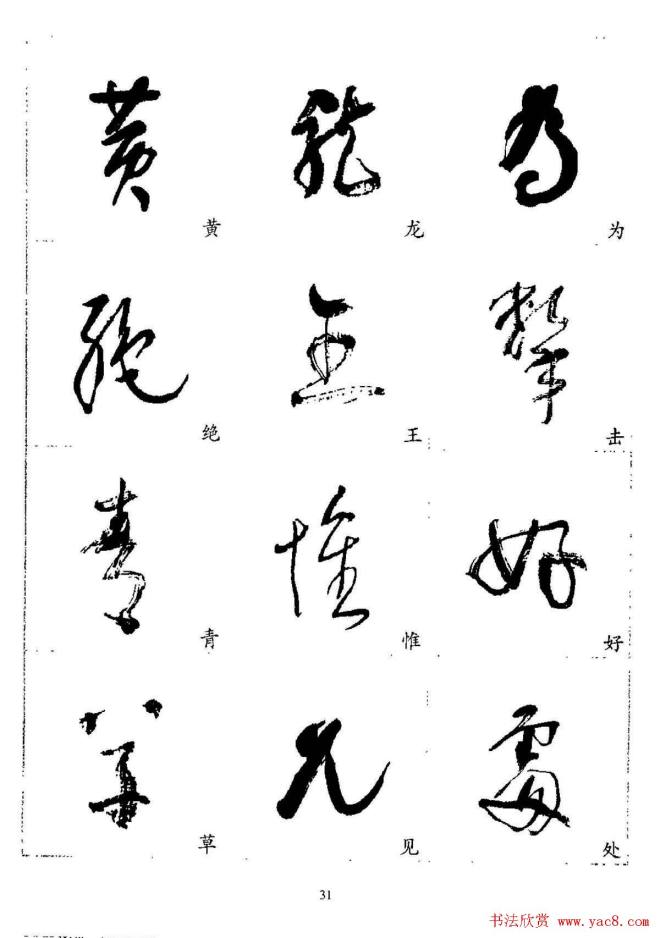 黄 龙 为
绝 王 击
青 惟 好
草 见 处
31
书法欣赏 www.yac8.com